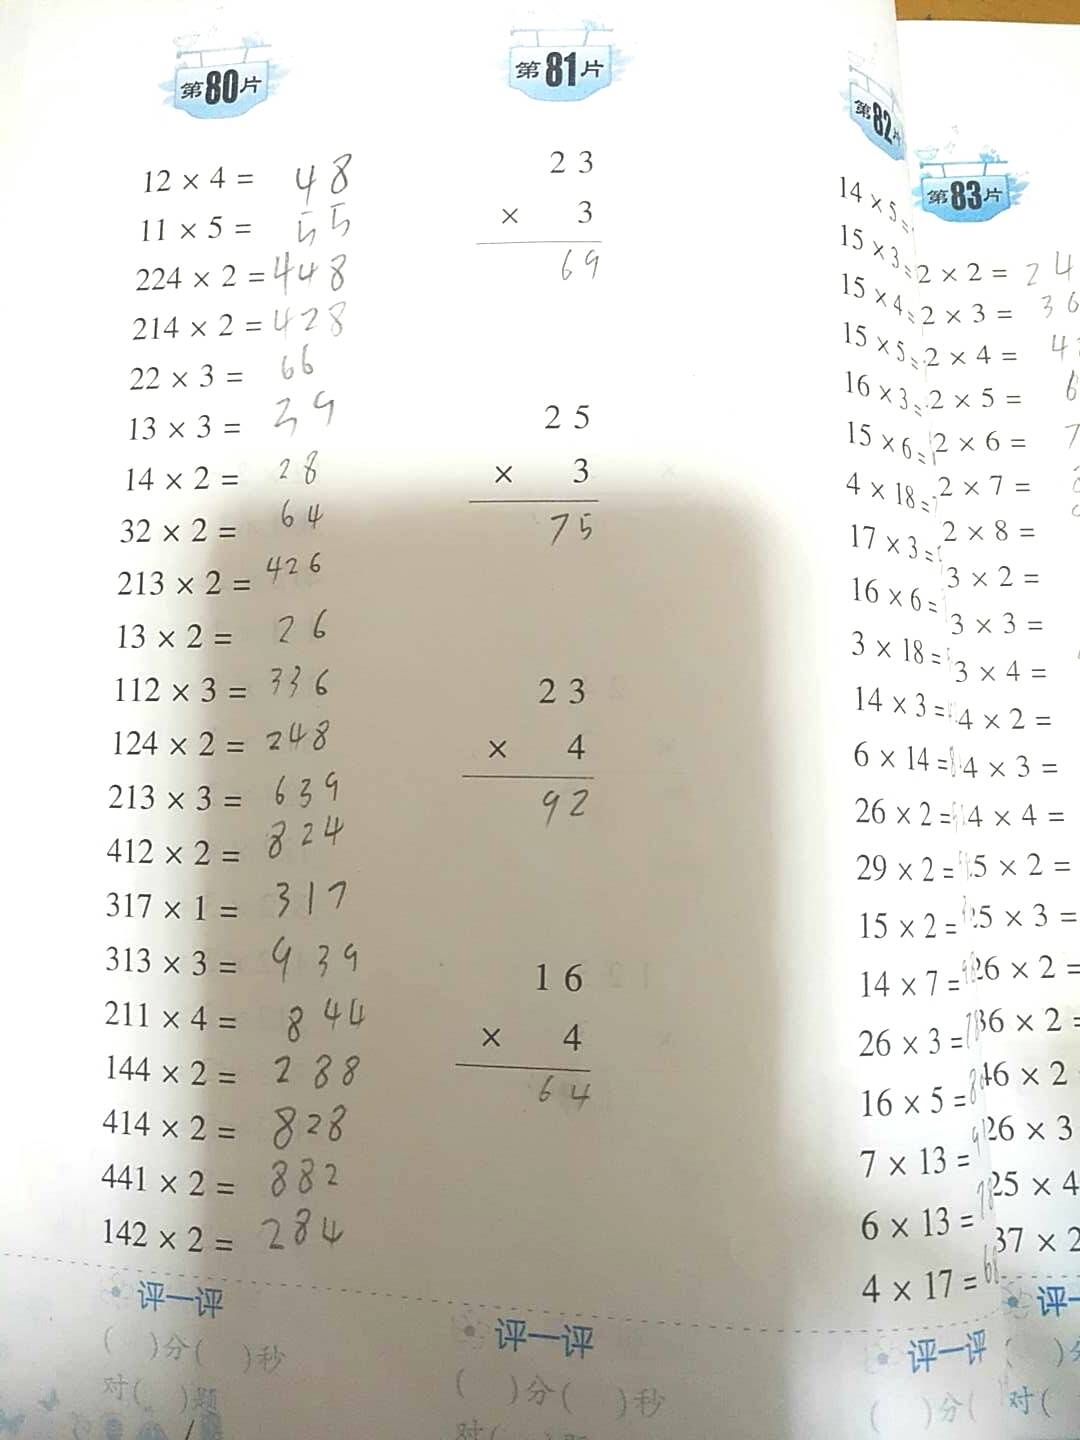 第80片
12 × 4 = 48
11 × 5 = 55
224 × 2 = 448
214 × 2 = 428
22 × 3 = 66
13 × 3 = 39
14 × 2 = 28
32 × 2 = 64
213 × 2 = 426
13 × 2 = 26
112 × 3 = 336
124 × 2 = 248
213 × 3 = 639
412 × 2 = 824
317 × 1 = 317
313 × 3 = 939
211 × 4 = 844
144 × 2 = 288
414 × 2 = 828
441 × 2 = 882
142 × 2 = 284
评一评
( )分( )秒
对( )题
第81片
23
× 3
69
25
× 3
75
23
× 4
92
16
× 4
64
评一评
( )分( )秒
对( )题
第82片
14 × 5 =
15 × 3 =
15 × 4 =
15 × 5 =
16 × 3 =
15 × 6 =
4 × 18 =
17 × 3 =
16 × 6 =
3 × 18 =
14 × 3 =
6 × 14 =
26 × 2 =
29 × 2 =
15 × 2 =
14 × 7 =
26 × 3 =
16 × 5 =
7 × 13 =
6 × 13 =
4 × 17 = 68
评一评
( )分(
第83片
2 × 2 = 24
2 × 3 = 36
2 × 4 = 4
2 × 5 = 6
2 × 6 = 7
2 × 7 =
2 × 8 =
3 × 2 =
3 × 3 =
3 × 4 =
4 × 2 =
4 × 3 =
4 × 4 =
5 × 2 =
5 × 3 =
26 × 2 =
36 × 2 =
46 × 2
26 × 3
25 × 4
37 × 2
评一
( )分
对(